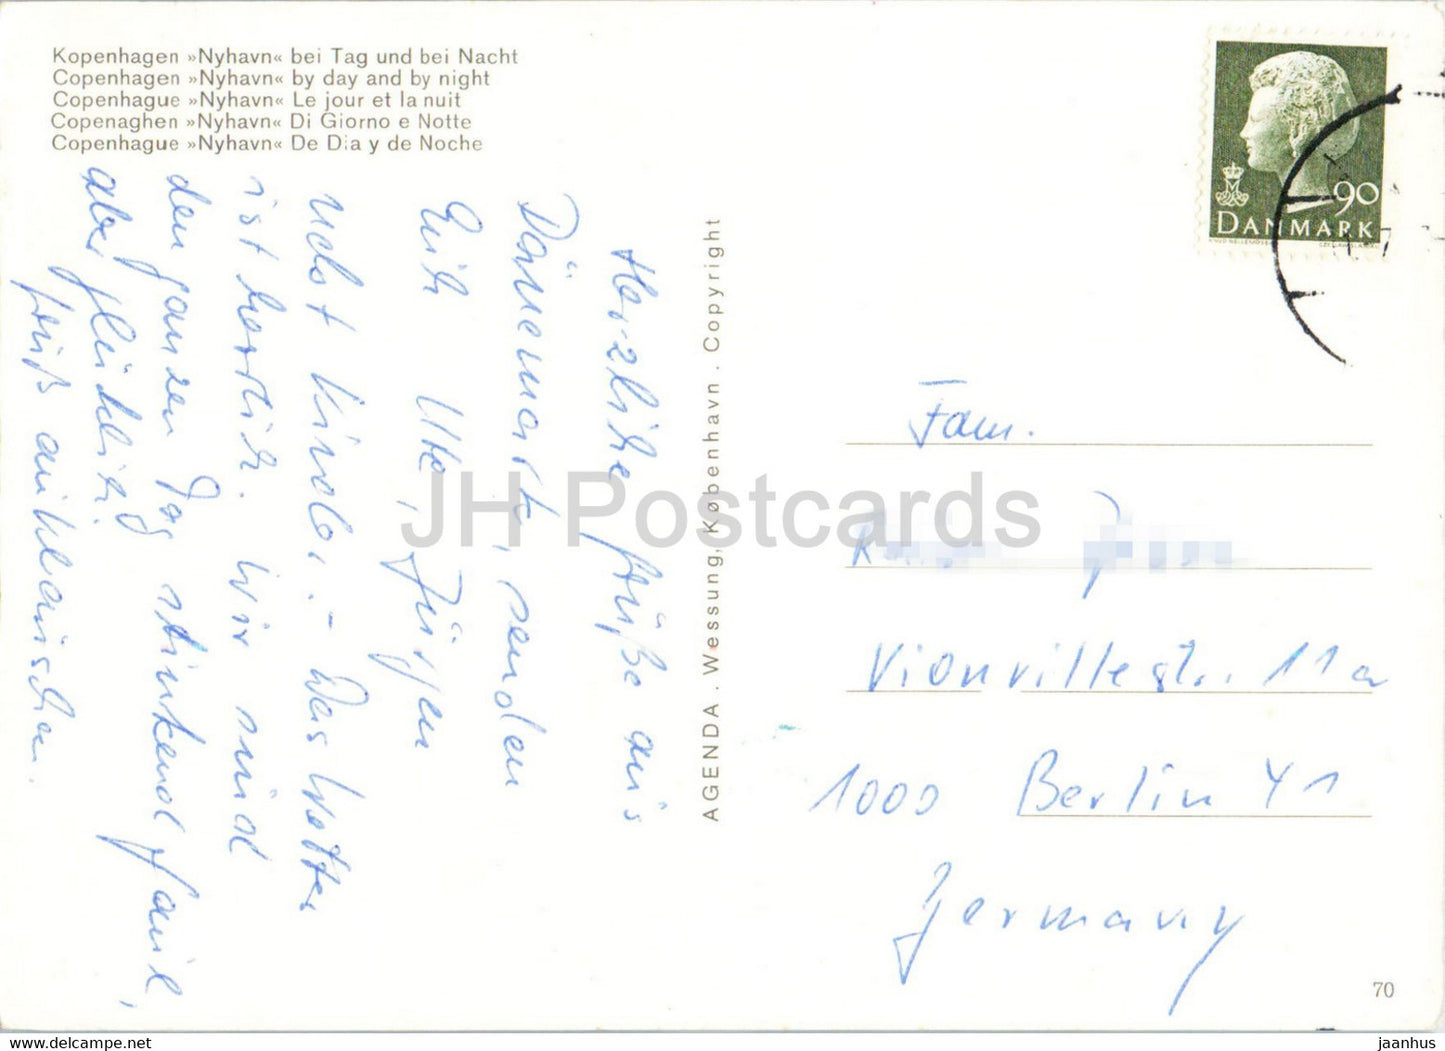 Kopenhagen »Nyhavn« bei Tag und bei Nacht
Copenhagen »Nyhavn« by day and by night
Copenhague »Nyhavn« Le jour et la nuit
Copenaghen »Nyhavn« Di Giorno e Notte
Copenhague »Nyhavn« De Dia y de Noche
Herzliche Grüße aus
Dänemark, senden
Euch Ute, Jürgen
nebst Kinder. – Das Wetter
ist herrlich. Wir sind
den ganzen Tag stinkend faul,
aber glücklich.
Gruß an
AGENDA . Wessung, København . Copyright
90
DANMARK
Fam.
Vionvillestr. 11a
1000 Berlin 41
Germany
70
JH Postcards
jaanhus